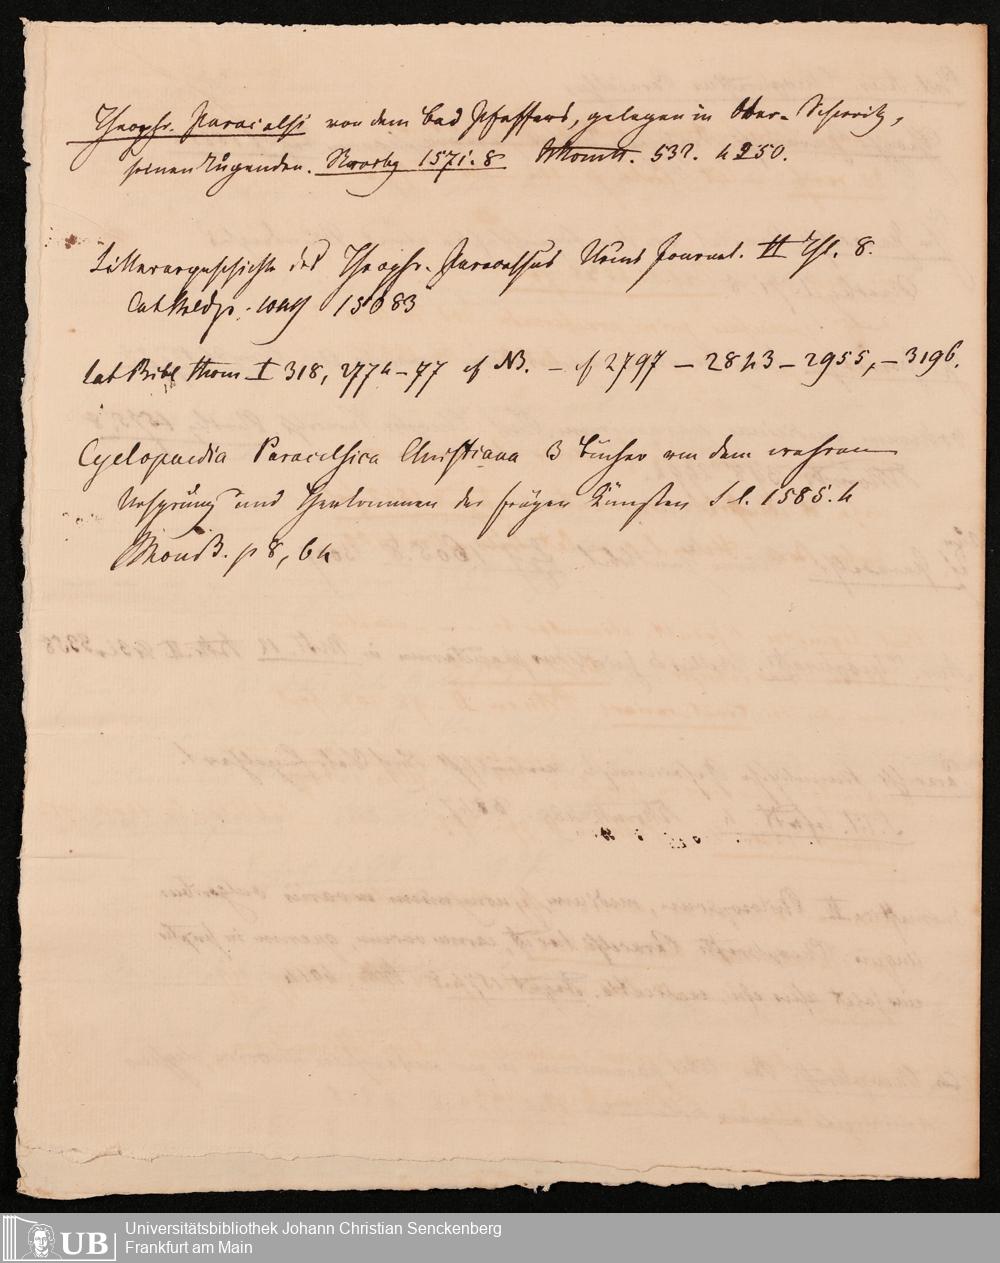 Theophr. Paracelsi von dem bad Pfeffers, gelegen in Ober-Schweitz,
seinen Tugenden. 1571. 8 532. 4 250.
Litterargeschichte des Theophr. Paracelsus Journal. II Th. 8.
Cat 15083
Cat Bibl Thom I 318, 2774–77 cf NB. – cf 2797 – 2843 – 2955, – 3196.
Cyclopaedia Paracelsica Christiana 3 Bücher von dem wahren
Ursprung und Herkommen der freyen Künsten S l. 1585. 4
p 8, 64
UB
Universitätsbibliothek Johann Christian Senckenberg
Frankfurt am Main